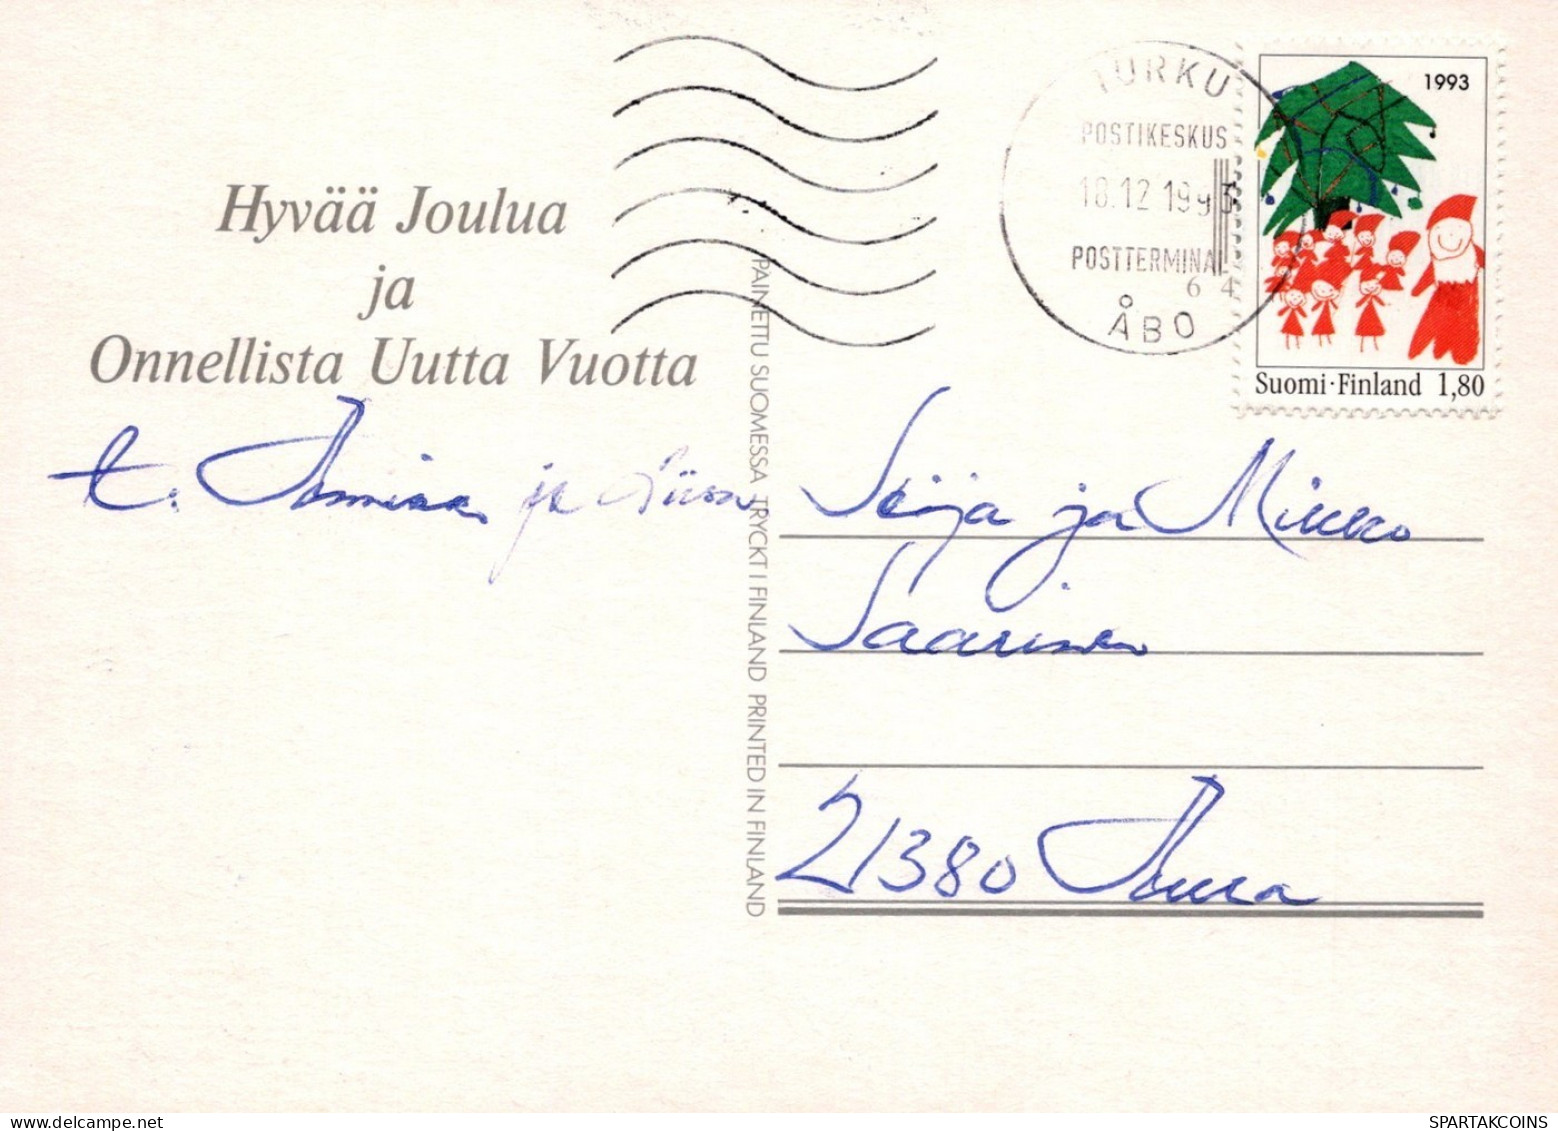 TURKU
POSTIKESKUS
18.12 1993
POSTTERMINAL
64
ÅBO
1993
Suomi·Finland 1,80
Hyvää Joulua
ja
Onnellista Uutta Vuotta
t. ja
PAINETTU SUOMESSA TRYCKT I FINLAND PRINTED IN FINLAND
Seija ja Mikko
Saarinen
21380 Aura
SPARTAKCOINS